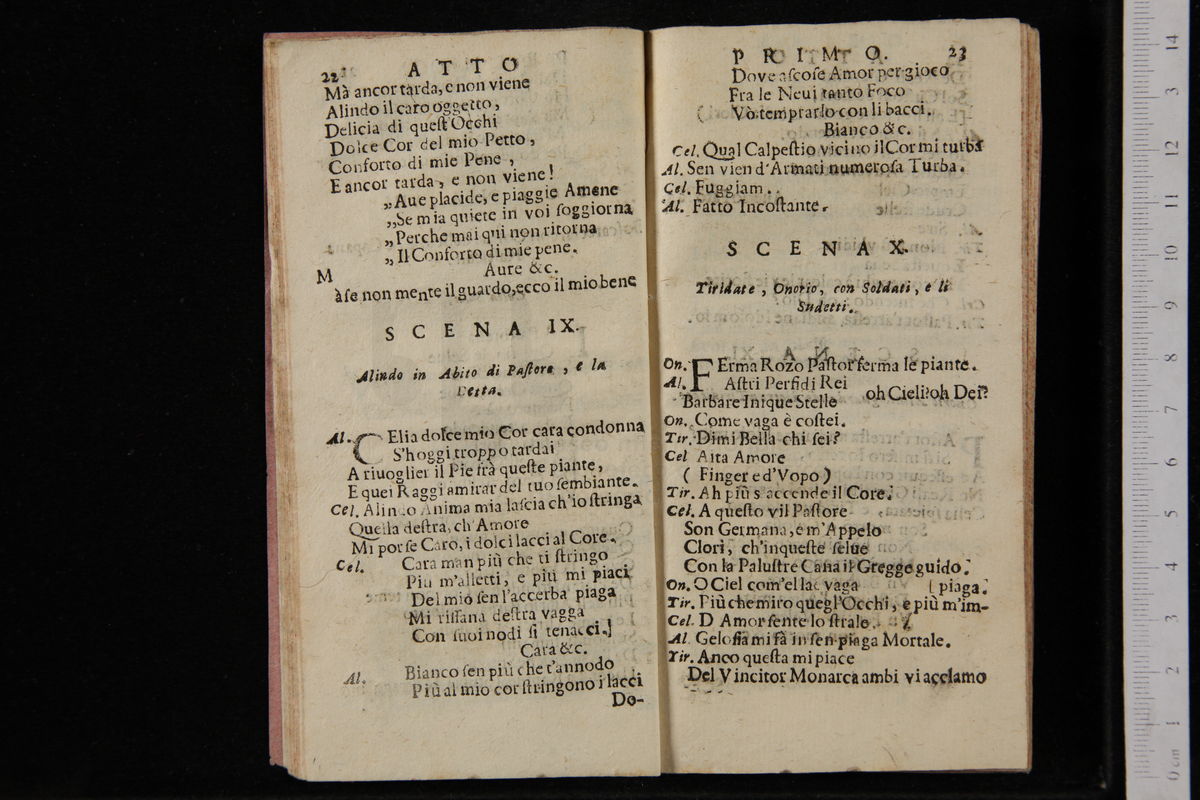 22 ATTO
Mà ancor tarda, e non viene
Alindo il caro oggetto,
Delicia di queſt'Occhi
Dolce Cor del mio Petto,
Conforto di mie Pene,
E ancor tarda, e non viene!
„Aue placide, e piaggie Amene
„Se mia quiete in voi ſoggiorna
„Perche mai qui non ritorna
„Il Conforto di mie pene.
Aure &c.
M
àſe non mente il guardo, ecco il mio bene
SCENA IX.
Alindo in Abito di Paſtore, e la
Detta.
Al. CElia dolce mio Cor cara condonna
S'hoggi troppo tardai
A riuoglier il Piè frà queſte piante,
E quei Raggi amirar del tuo ſembiante.
Cel. Alindo Anima mia laſcia ch'io ſtringa
Quella deſtra, ch'Amore
Mi porſe Caro, i dolci lacci al Core.
Cel. Cara man più che ti ſtringo
Piu m'alletti, e più mi piaci
Del mio ſen l'accerba piaga
Mi riſſana deſtra vagga
Con ſuoi nodi ſi tenacci.]
Cara &c.
Al. Bianco ſen più che t'annodo
Più al mio cor ſtringono i lacci
Do-
PRIMO. 23
Dove aſcoſe Amor per gioco
Fra le Neui tanto Foco
Vò temprarlo con li bacci.
Bianco &c.
Cel. Qual Calpeſtio vicino il Cor mi turba
Al. Sen vien d'Armati numeroſa Turba.
Cel. Fuggiam..
Al. Fatto Incoſtante.
SCENA X.
Tiridate, Onorio, con Soldati, e li
Sudetti.
On. FErma Rozo Paſtor ferma le piante.
Al. Aſtri Perfidi Rei
Barbare Inique Stelle oh Cieli? oh Dei?
On. Come vaga è coſtei.
Tir. Dimi Bella chi ſei?
Cel Aita Amore
( Finger e d'Vopo )
Tir. Ah più s'accende il Core.
Cel. A queſto vil Paſtore
Son Germana, e m'Appelo
Clori, ch'inqueſte ſelue
Con la Paluſtre Cana il Gregge guido.
On. O Ciel com'ella è vaga [ piaga.
Tir. Più che miro quegl'Occhi, e più m'im-
Cel. D Amor ſente lo ſtrale.
Al Geloſia mi fà in ſen piaga Mortale.
Tir. Anco queſta mi piace
Del Vincitor Monarca ambi vi acclamo